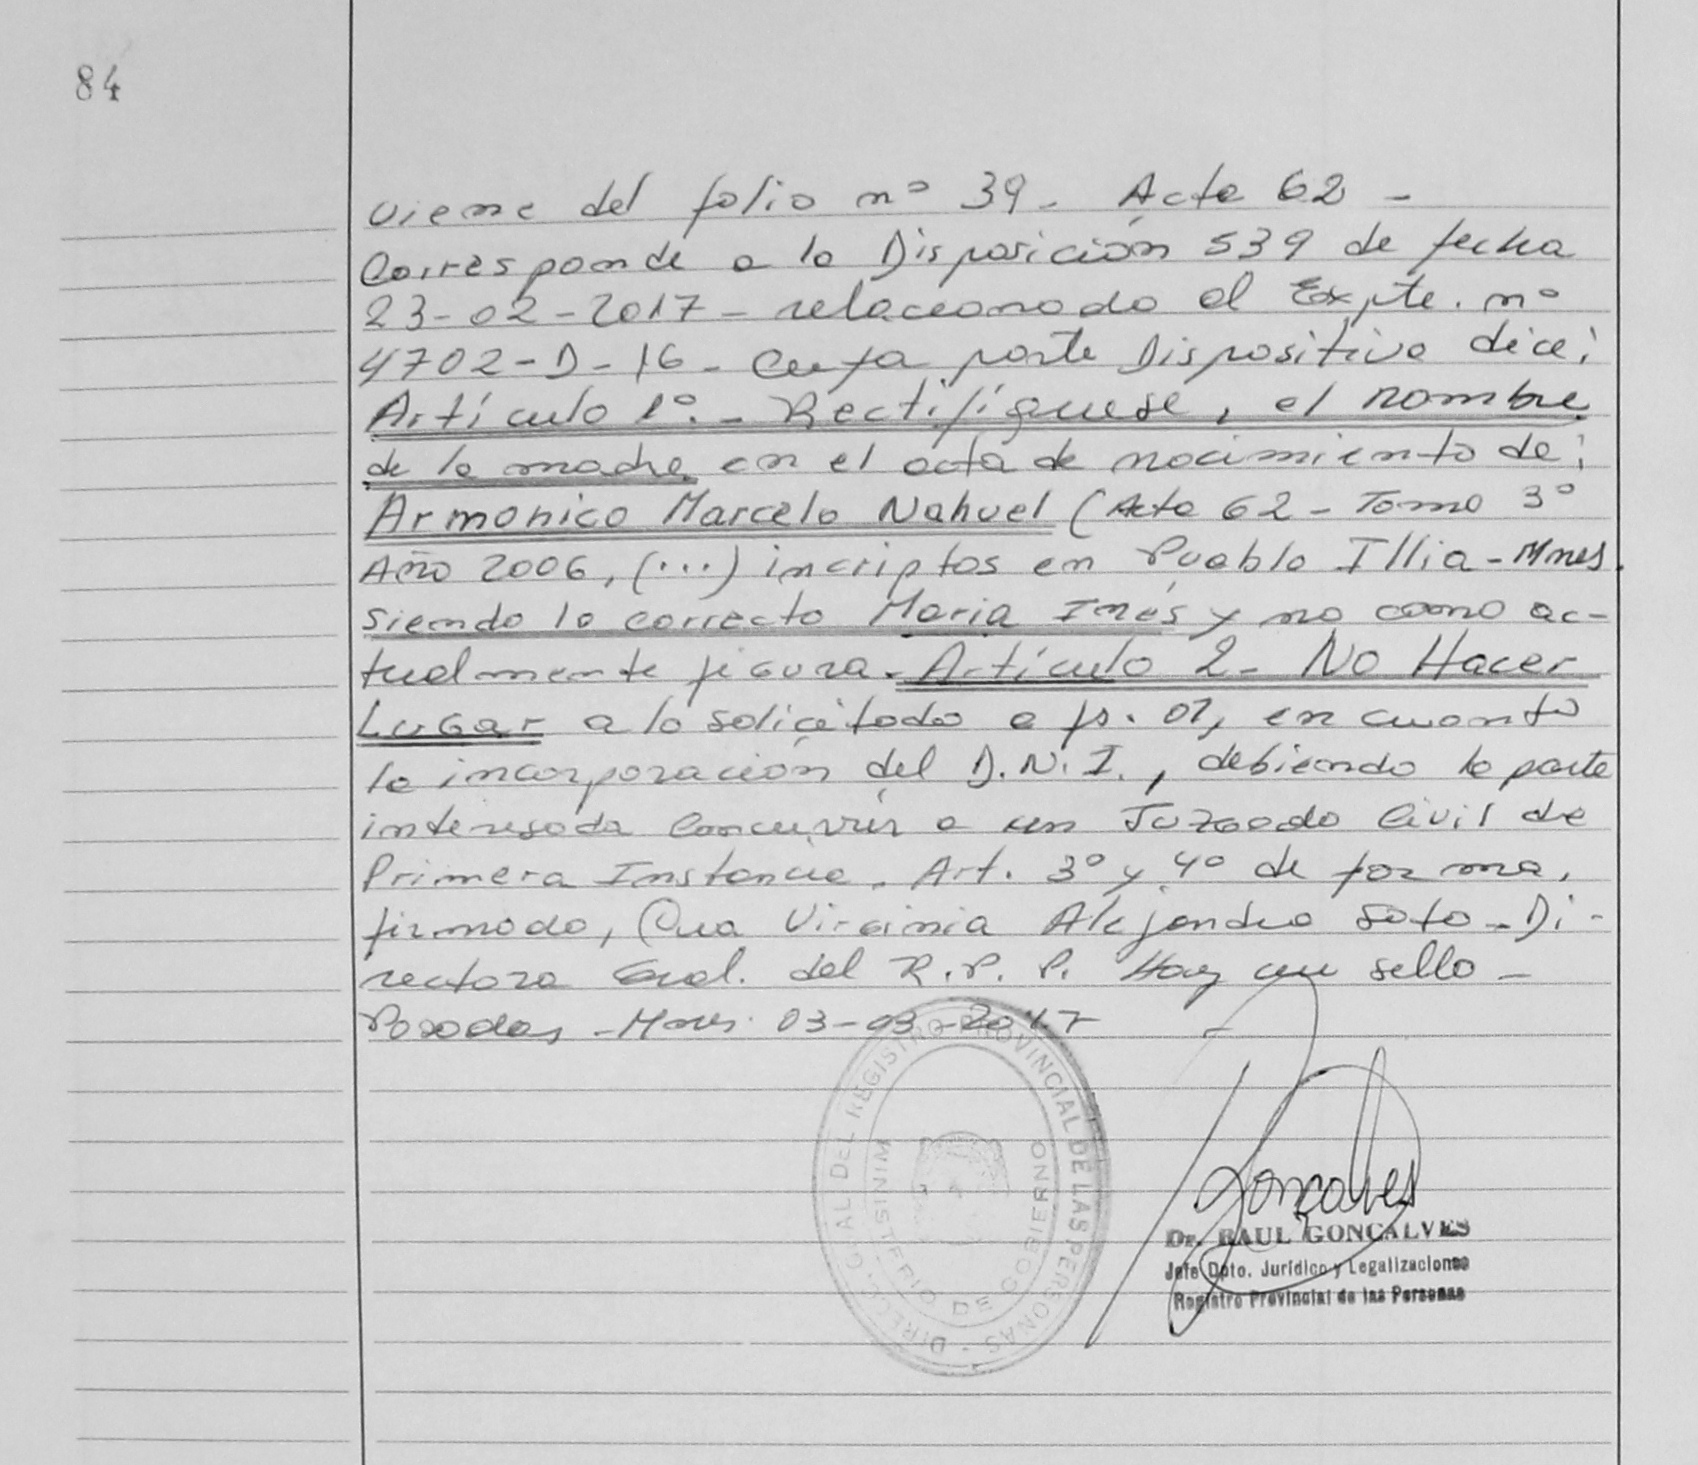 84
Viene del folio nº 39 - Acta 62 -
Corresponde a la Disposición 539 de fecha
23-02-2017 - relacionado al Expte. nº
4702-D-16 - Cuya parte Dispositiva dice:
Artículo 1º. - Rectifíquese, el nombre
de la madre en el acta de nacimiento de:
Armonico Marcelo Nahuel (Acta 62 - Tomo 3º
Año 2006, (...) incriptos en Pueblo Illia - Mnes.
siendo lo correcto Maria Inés y no como ac-
tualmente figura. Artículo 2 - No Hacer
Lugar a lo solicitado a fs. 01, en cuanto
la incorporación del D.N.I., debiendo la parte
interesada concurrir a un Juzgado Civil de
Primera Instancia. Art. 3º y 4º de forma,
firmado, Virginia Alejandra Soto - Di-
rectora Gral. del R.P.P. Hay un sello -
Posadas - Mnes. 03-03-2017
DIRECC. GRAL DEL REGISTRO PROVINCIAL DE LAS PERSONAS -
MINISTERIO DE GOBIERNO
Gonçalves
Dr. RAUL GONCALVES
Jefe Dpto. Jurídico y Legalizaciones
Registro Provincial de las Personas